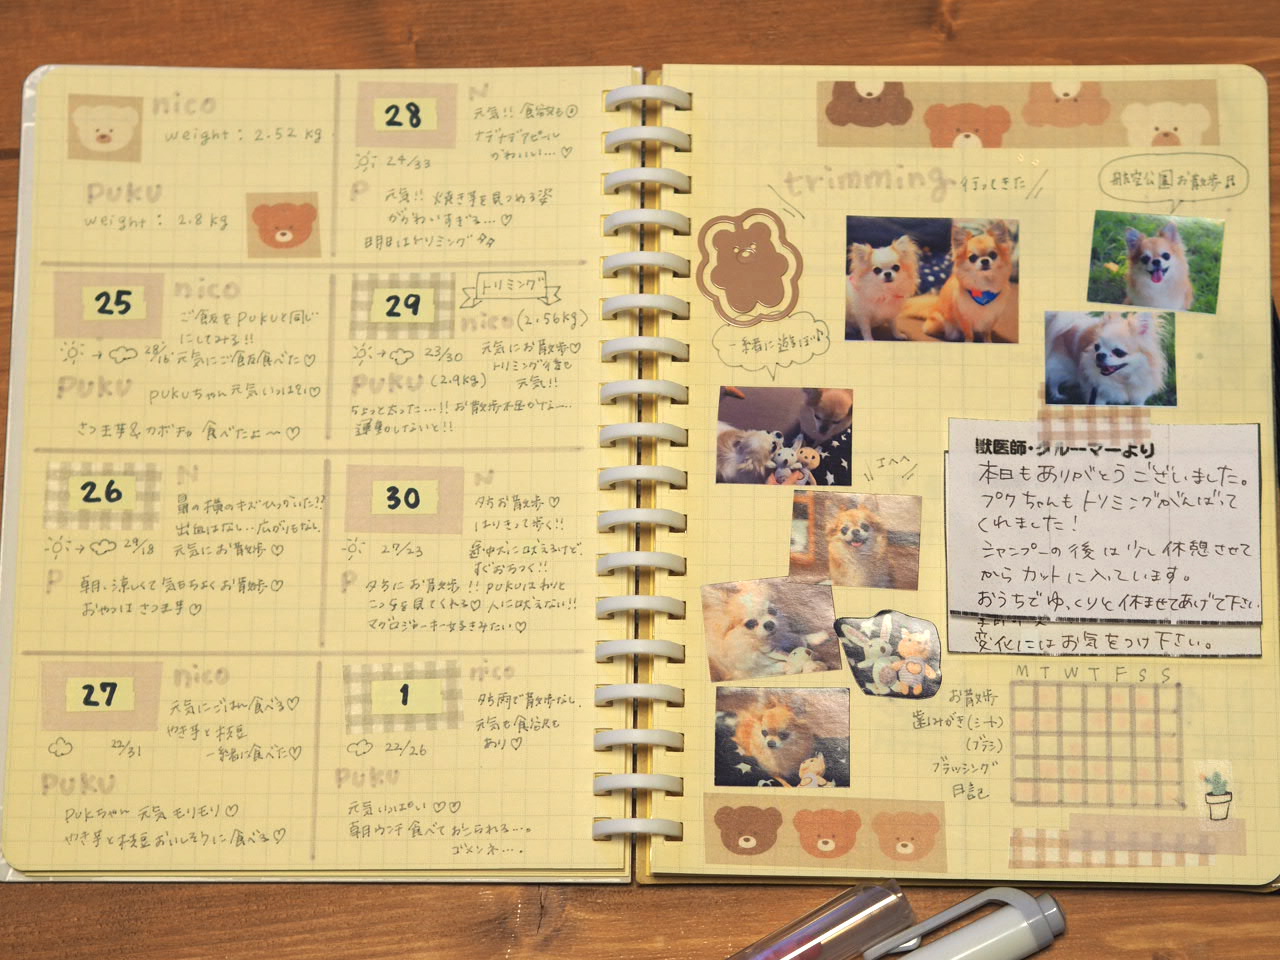 nico
weight : 2.52 kg
puku
weight : 2.8 kg
25
nico
ご飯をpukuと同じ
にしてみる!!
元気にご飯食べた♡
puku
pukuちゃん元気いっぱい♡
さつま芋&カボチャ 食べたよ〜♡
26
N
鼻の横のキズひっかいた!?
出血はなし…広がりもなし。
29/18
元気にお散歩♡
P
朝、涼しくて気持ちよくお散歩♡
おやつはさつま芋♡
27
nico
元気にごはん食べる♡
やき芋と枝豆
一緒に食べた♡
22/31
puku
pukuちゃん元気モリモリ♡
やき芋と枝豆おいしそうに食べる♡
28
N
元気!! 食欲も◎
ナデナデアピール
かわいい…♡
24/33
P
元気!! 焼き芋を見つめる姿
がかわいすぎる…♡
明日はトリミング
29
トリミング
nico (2.56kg)
23/30
元気にお散歩♡
トリミング後も
元気!!
puku (2.9kg)
ちょっと太った…!! お散歩不足かな…
運動しないと!!
30
N
夕方お散歩♡
はりきって歩く!!
途中犬に吠えるけど、
すぐおちつく!!
27/23
P
夕方にお散歩!! pukuはわりと
こっち見てくれる♡ 人に吠えない!!
マグロジャーキー好きみたい♡
1
nico
夕方雨で散歩なし。
元気も食欲も
あり♡
22/26
puku
元気いっぱい♡♡
朝ウンチ食べておこられる…。
ゴメンネ…。
trimming 行ってきた
航空公園お散歩♫
一緒に遊ぼ♪
エヘヘ
獣医師・グルーマーより
本日もありがとうございました。
プクちゃんもトリミングがんばって
くれました!
シャンプーの後は少し休憩させて
からカットに入っています。
おうちでゆっくりと休ませてあげて下さい
変化にはお気をつけ下さい。
M T W T F S S
お散歩
歯みがき(シート)
(ブラシ)
ブラッシング
日記